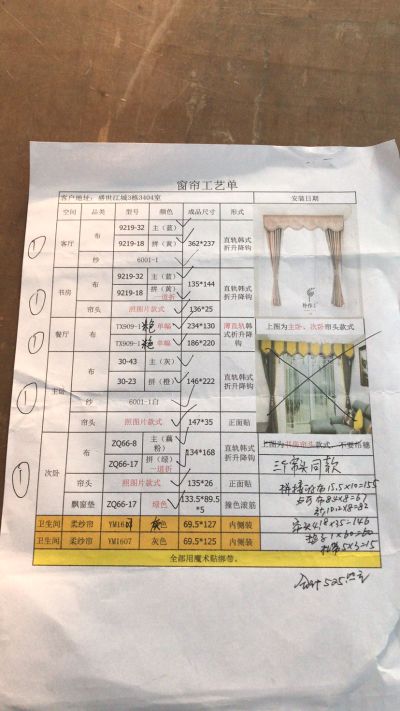 窗帘工艺单
客户地址：盛世江城3栋3404室 安装日期
空间 品类 型号 颜色 成品尺寸 形式
客厅 布 9219-32 主（蓝） 362*237 直轨韩式折升降钩
9219-18 拼（黄）
纱 6001-1
书房 布 9219-32 主（蓝） 135*144 直轨韩式折升降钩
9219-18 拼（黄）一道折
帘头 照图片款式 136*25
餐厅 布 TX909-1 单幅 234*130 薄直轨韩式折升降钩
TX909-1 单幅 186*220
上图为主卧、次卧帘头款式
主卧 布 30-43 主（灰） 146*222 直轨韩式折升降钩
30-23 拼（橙）
纱 6001-1白
帘头 照图片款式 147*35 正面贴
上图为书房帘头款式，不要搭穗
次卧 布 ZQ66-8 主（藕粉） 134*168 直轨韩式折升降钩
ZQ66-17 拼（绿）一道折
帘头 照图片款式 135*26 正面贴
飘窗垫 ZQ66-17 绿色 133.5*89.5*5 撞色滚筋
卫生间 柔纱帘 灰色 69.5*127 内侧装
卫生间 柔纱帘 YM1607 灰色 69.5*125 内侧装
全部用魔术贴绑带。
三个帘头同款
15.5×10=155
8.4×8=67
4.18×35=146
1×60=60
5×3=15
合计525.